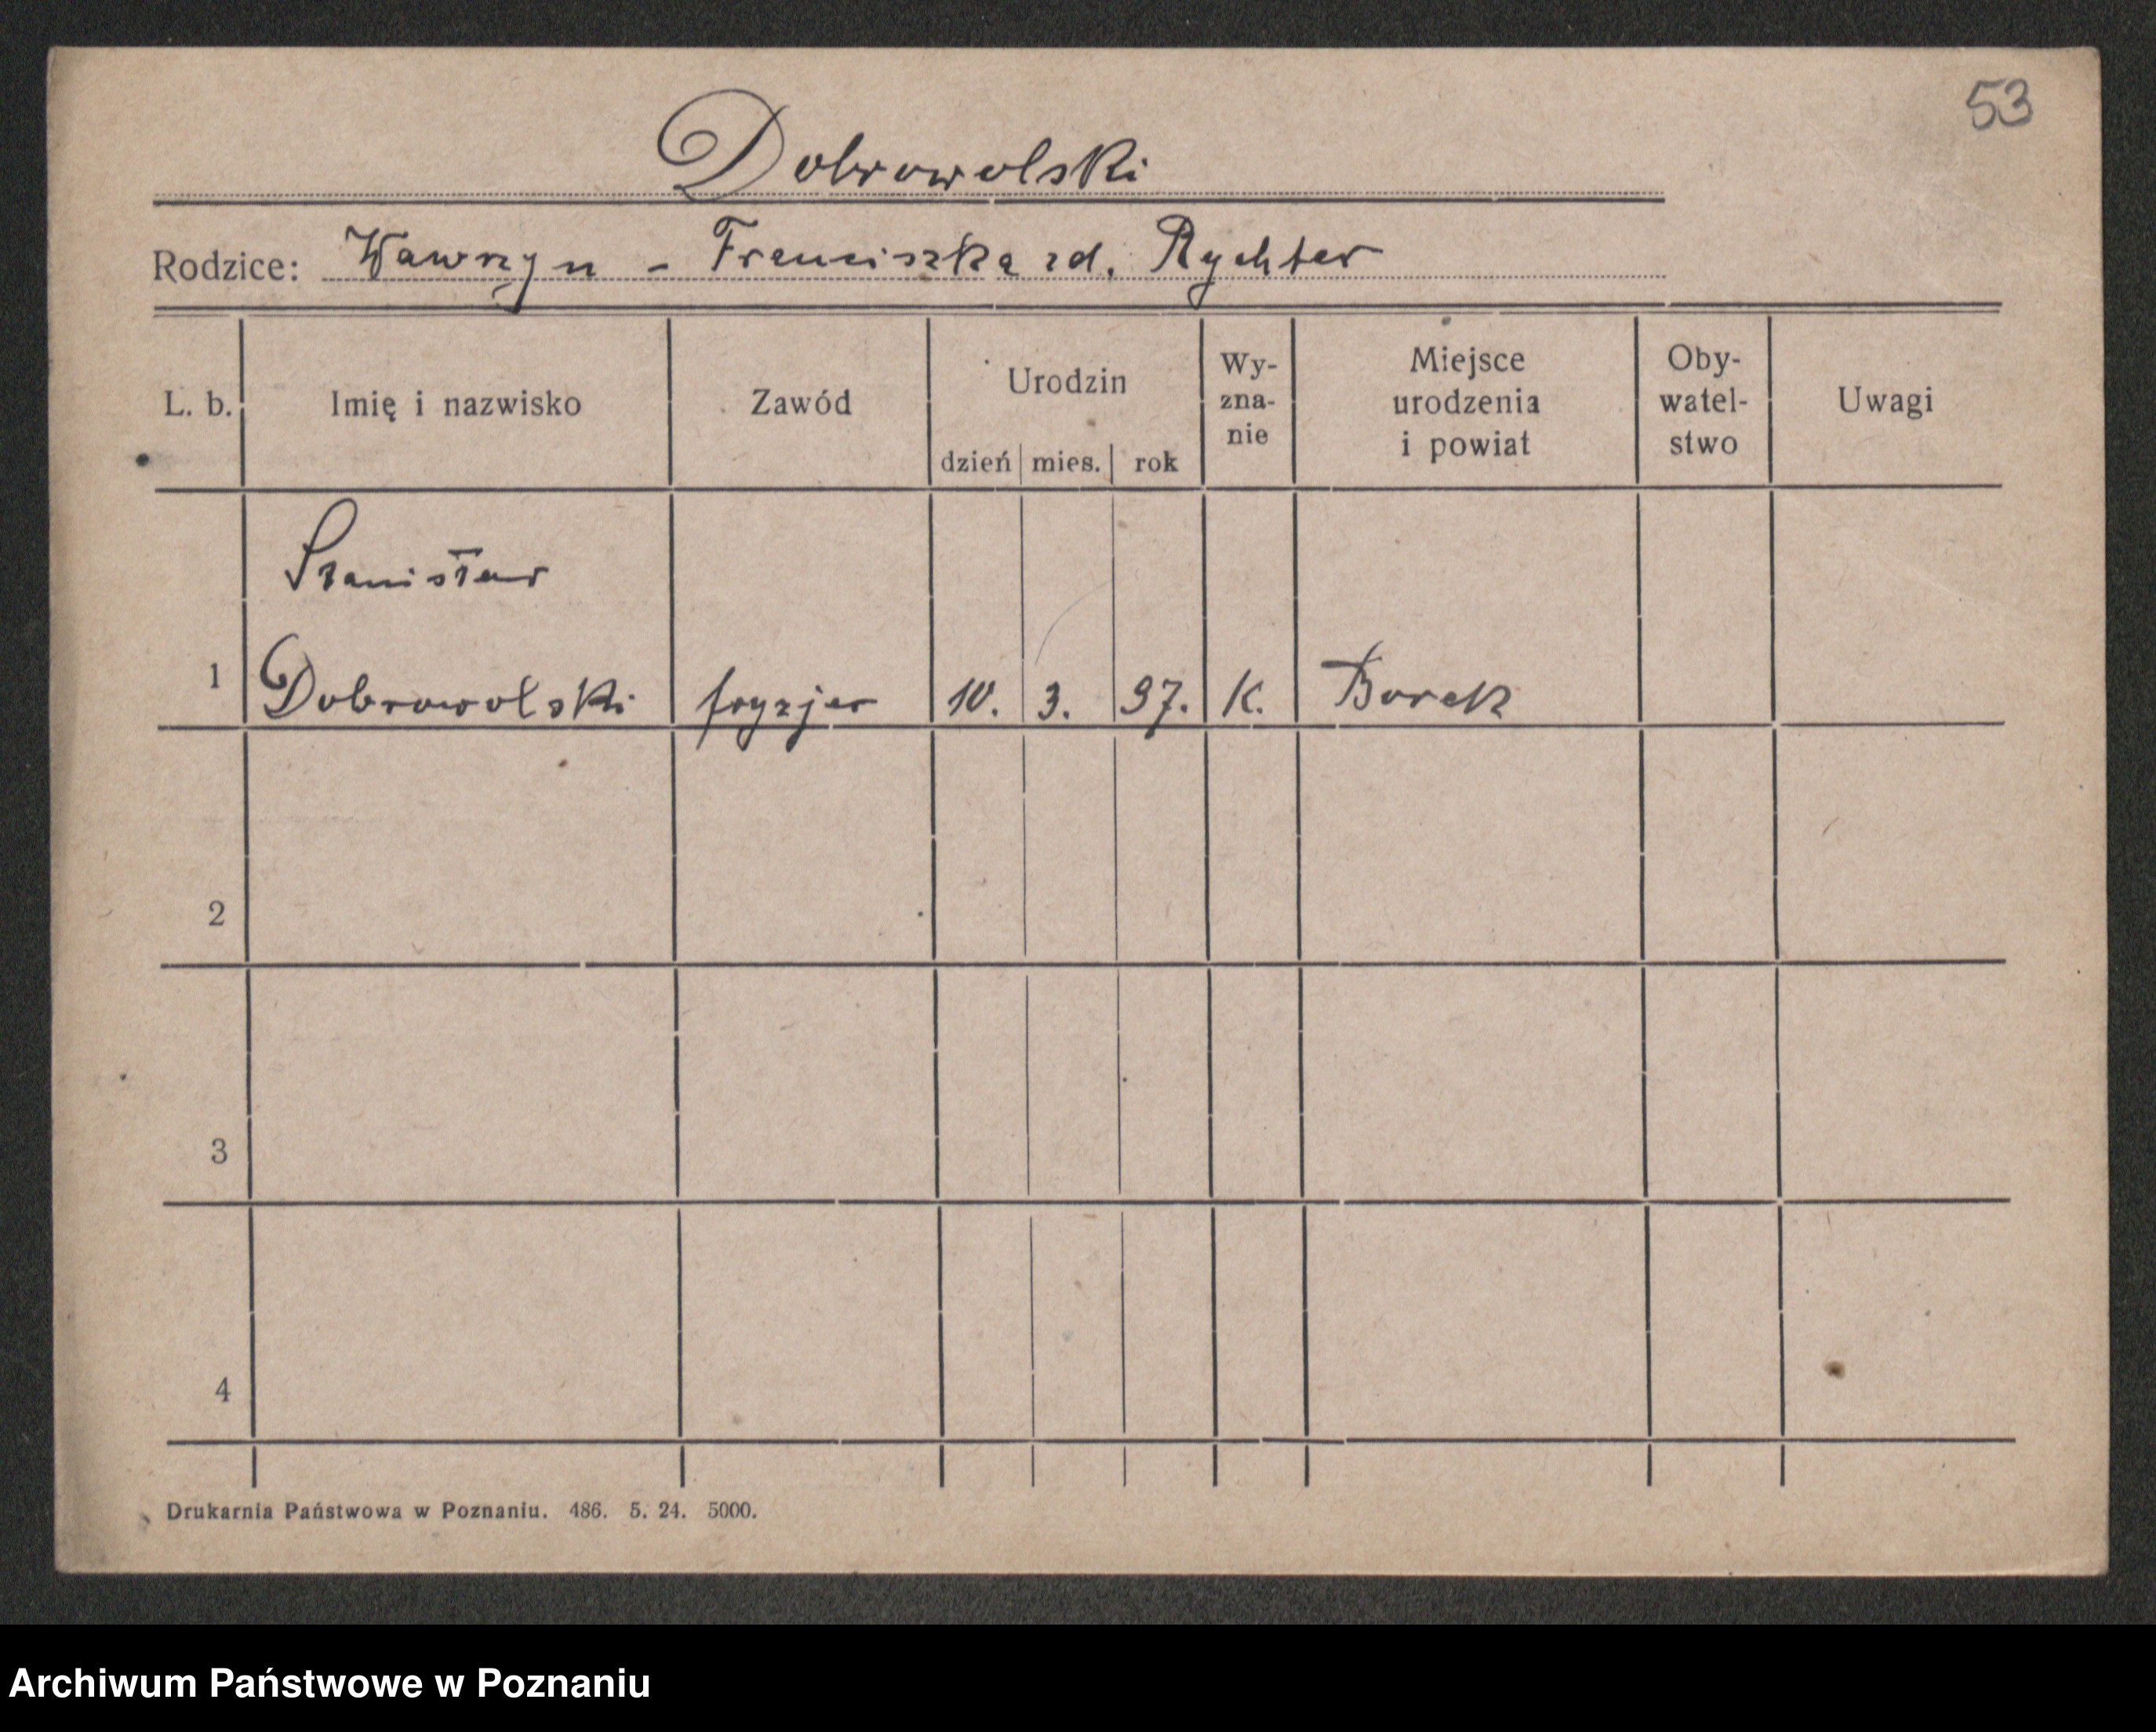 53
Dobrowolski
Rodzice: Wawrzyn - Franciszka zd. Rychter
L. b. Imię i nazwisko Zawód Urodzin dzień mies. rok Wy-zna-nie Miejsce urodzenia i powiat Oby-watel-stwo Uwagi
Stanisław
1 Dobrowolski fryzjer 10. 3. 97. K. Borek
2
3
4
Drukarnia Państwowa w Poznaniu. 486. 5. 24. 5000.
Archiwum Państwowe w Poznaniu